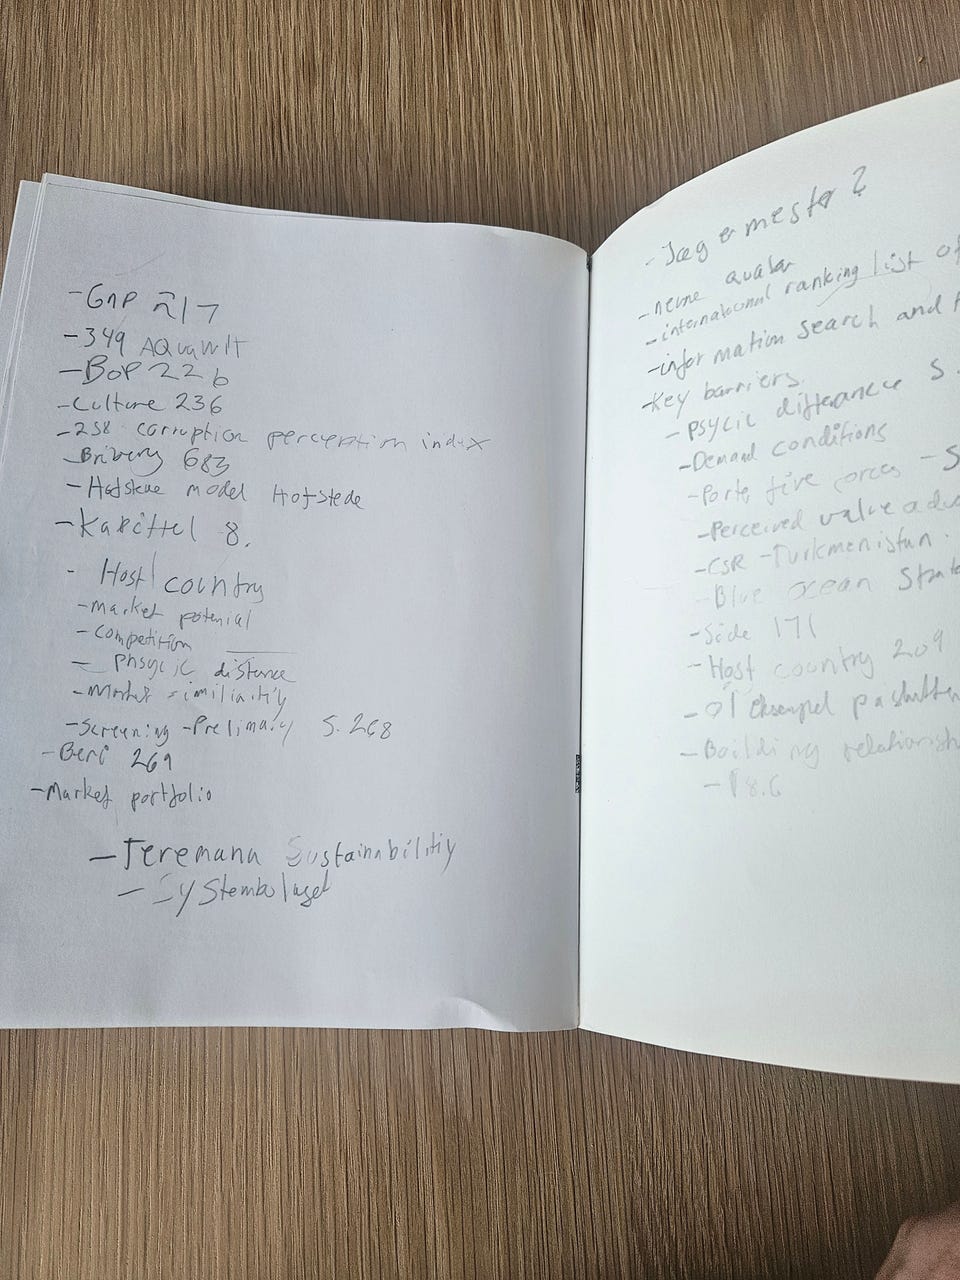 - GNP 217
- 349 AQuavit
- BOP 226
- Culture 236
- 258 corruption perception index
- Brivery 683
- Hofstene model Hofstede
- Kapittel 8.
- Host country
- market potenial
- competition
- phsycic distance
- Market similiaitiy
- Screening - Prelimary S. 268
- Beri 269
- Market portfolio
- Teremana Sustainabilitiy
- Systembolaget
- Jagermester ?
- neme
- international ranking list of
- information search and
- Key barriers
- Psycic differance S.
- Demand conditions
- Porte five forces - S
- Perceived value
- CSR - Turkmenistan.
- Blue ocean
- Side 171
- Host country 209
- Øl Eksempel på
- Building
- 18.6